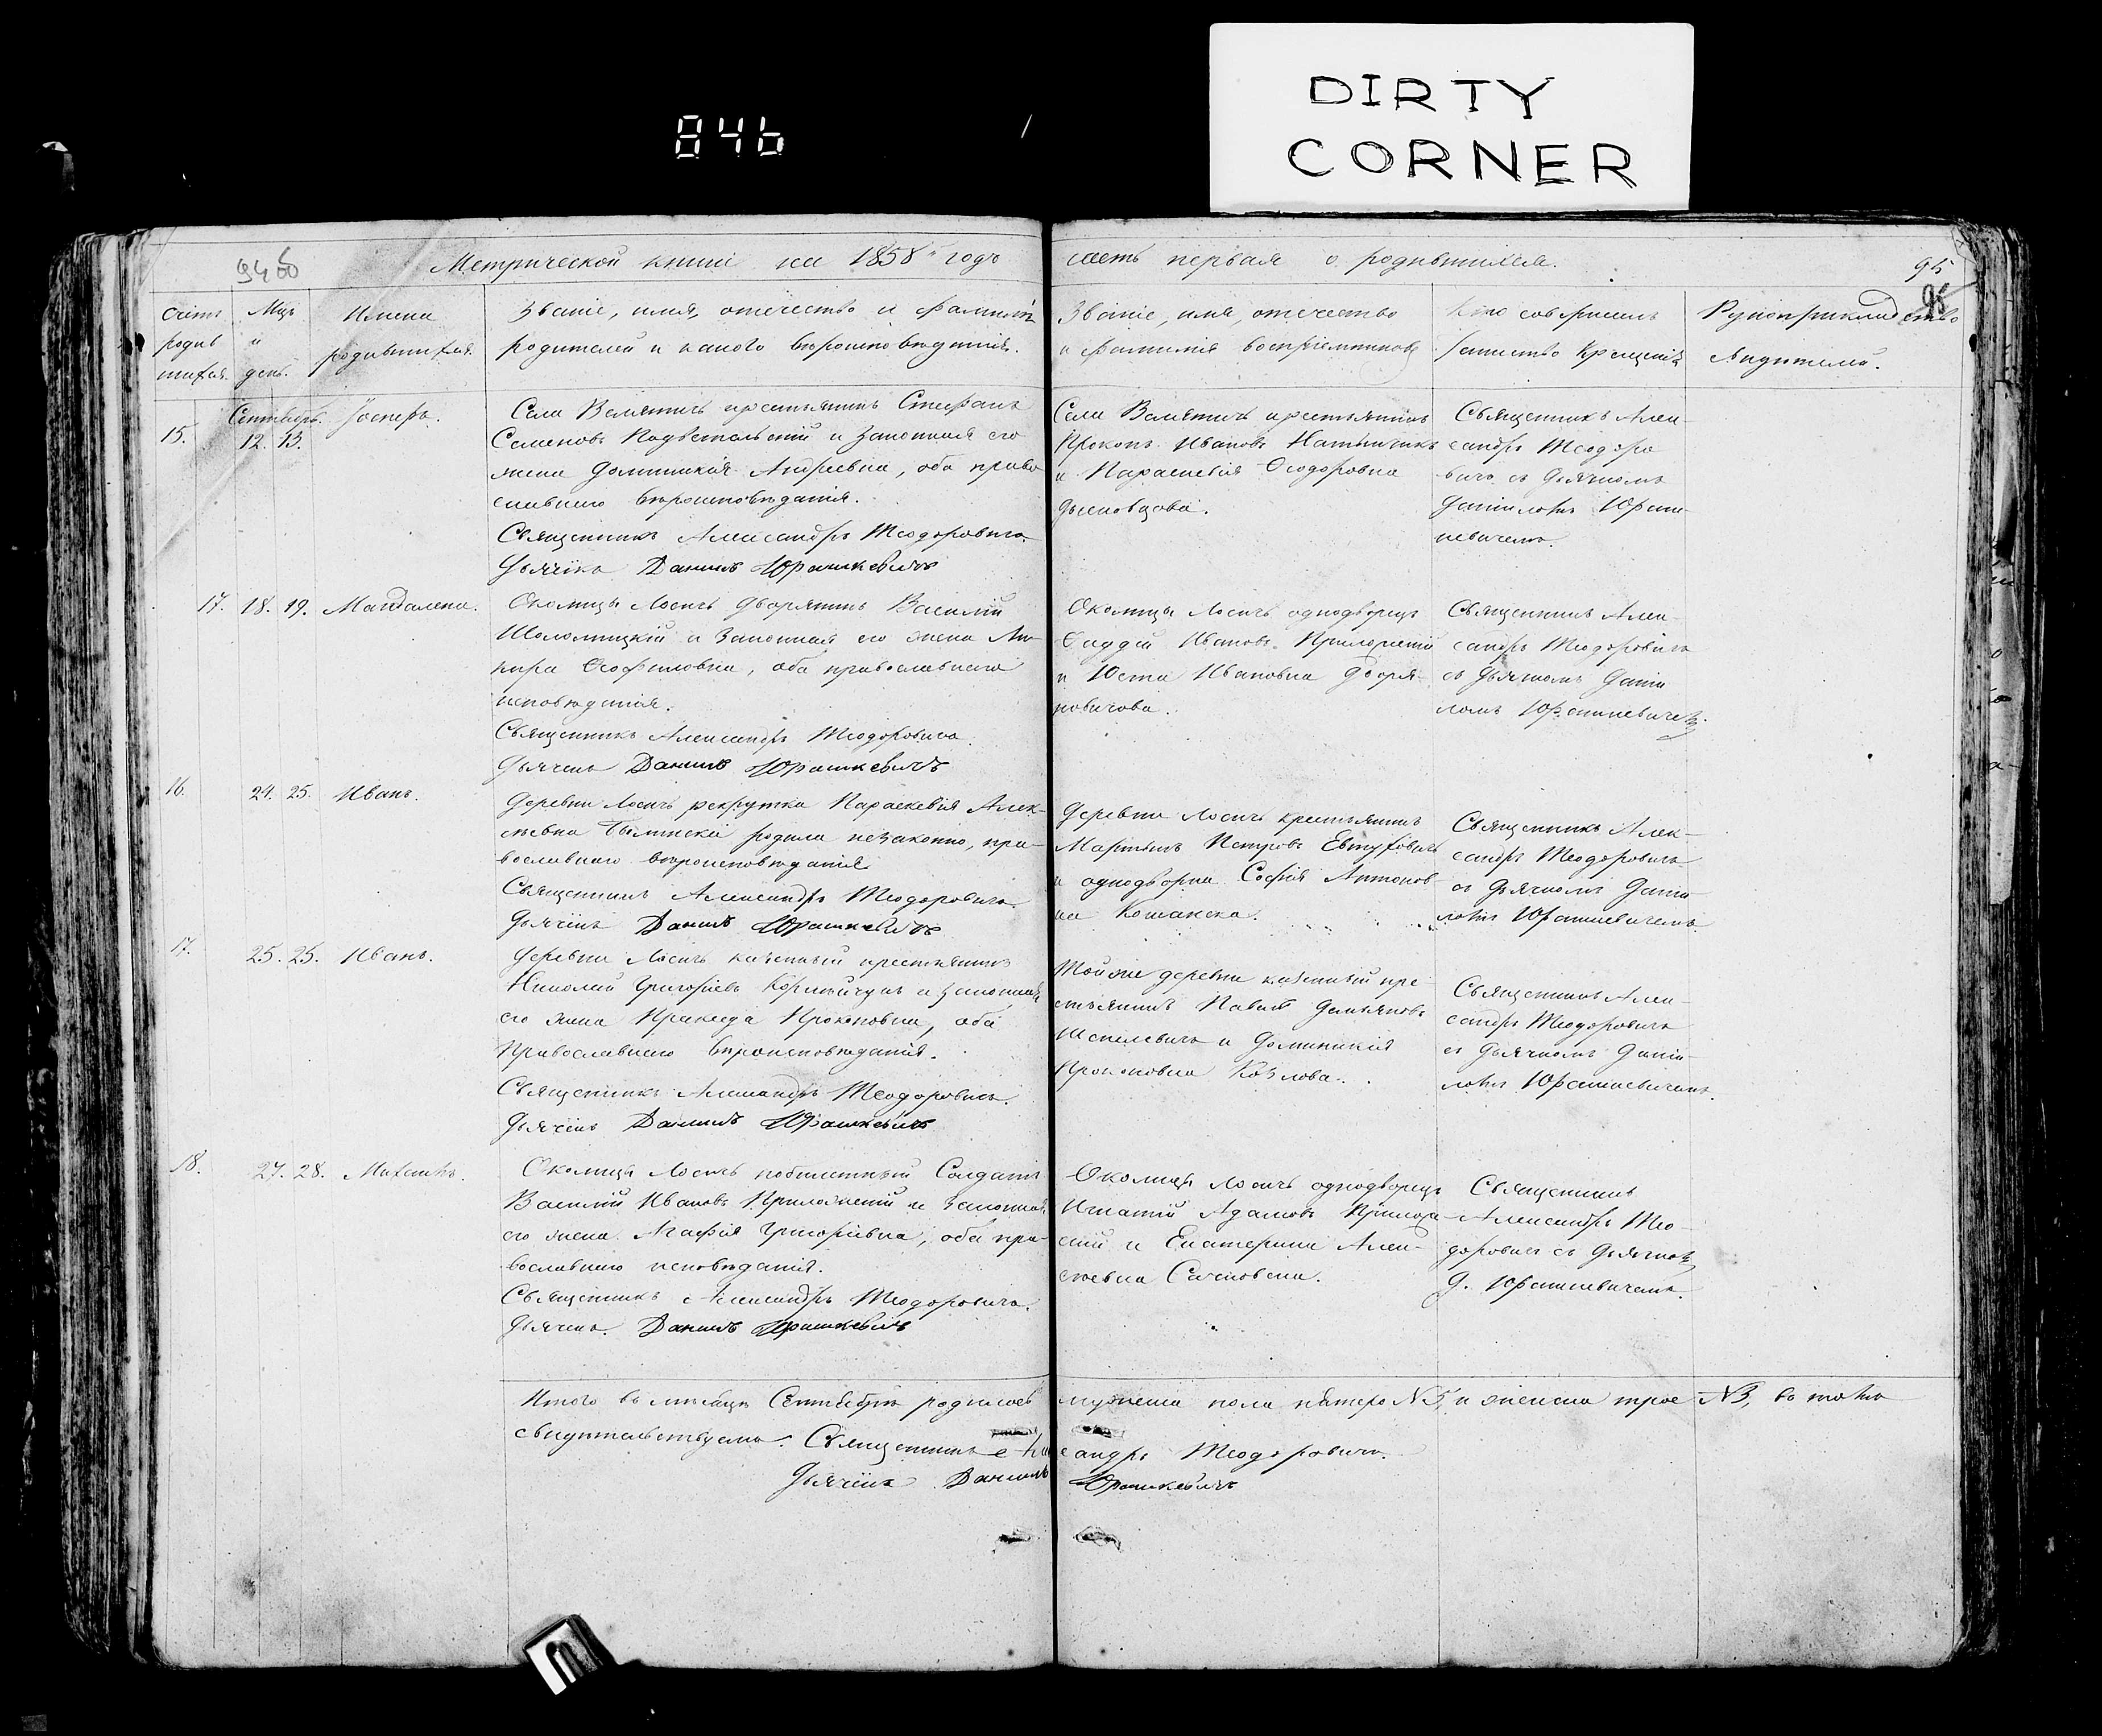 DIRTY
CORNER
846
94 об
Метрической книги на 1858 годъ часть первая о родившихся.
95
95
Счетъ родив шихся.
Мцъ и день.
Имена родившихся.
Званіе, имя, отечество и фамилія
родителей и какого вѣроисповѣданія.
Званіе, имя, отечество
и фамилія воспріемниковъ
Кто совершилъ
таинство крещенія
Рукоприкладство
свидителей.
15.
Сентябрь.
12. 13.
Іосифъ.
Села Велятичъ крестьянинъ Стефанъ
Семеновъ и законная его
жена Доминикія Андреевна, оба право
славнаго вѣроисповѣданія.
Священникъ Александръ Теодоровичъ.
Дьячекъ Даниилъ Юрашкевичъ
Села Велятичъ крестьянинъ
Прокопъ Ивановъ
и Параскевія Ѳеодоровна
Священникъ Алек-
сандръ Теодоро
вичъ съ дьячкомъ
Даніиломъ Юраш-
кевичемъ.
17. 18. 19. Магдалена.
Околицы Лосичъ дворянинъ Василій
и законная его жена
Ѳеофиловна, оба православнаго
исповѣданія.
Священникъ Александръ Теодоровичъ.
Дьячекъ Даниилъ Юрашкевичъ
Околицы Лосичъ однодворецъ
Ѳаддей Ивановъ
и Юста Ивановна
Священникъ Алек-
сандръ Теодоровичъ
съ дьячкомъ Даніи
ломъ Юрашкевичемъ.
16. 24. 25. Иванъ.
Деревни Лосичъ рекрутка Параскевія Алек-
сѣевна родила незаконно, пра-
вославнаго вѣроисповѣданія
Священникъ Александръ Теодоровичъ.
Дьячекъ Даниилъ Юрашкевичъ
Деревни Лосичъ крестьянинъ
Мартинъ Петровъ Евтуховичъ
и однодворка Софія Антонов-
на
Священникъ Алек-
сандръ Теодоровичъ
съ дьячкомъ Даніи-
ломъ Юрашкевичемъ.
17. 25. 25. Иванъ.
Деревни Лосичъ казенный крестьянинъ
Николай Григоріевъ и законная
его жена Праксда Прокоповна, оба
Православнаго вѣроисповѣданія.
Священникъ Александръ Теодоровичъ.
Дьячекъ Даниилъ Юрашкевичъ
Той же деревни казенный кре-
стьянинъ Павелъ Демьяновъ
и Доминикія
Прокоповна Козлова.
Священникъ Алек-
сандръ Теодоровичъ
съ дьячкомъ Даніи-
ломъ Юрашкевичемъ.
18. 27. 28. Михаилъ.
Околицы Лосичъ Солдатъ
Василій Ивановъ и законная
его жена Агафія Григоріевна, оба пра-
вославнаго исповѣданія.
Священникъ Александръ Теодоровичъ.
Дьячекъ. Даниилъ Юрашкевичъ
Околицы Лосичъ однодворецъ
Игнатій Адамовъ
и Екатерина Алек-
сѣевна
Священникъ
Александръ Тео-
доровичъ съ дьячкомъ
Д. Юрашкевичемъ.
Итого въ мѣсяцѣ Сентябрѣ родилось мужеска пола пятеро №5, и женска трое №3, въ томъ
свидительствуемъ. Священникъ Александръ Теодоровичъ.
Дьячекъ Даниилъ Юрашкевичъ